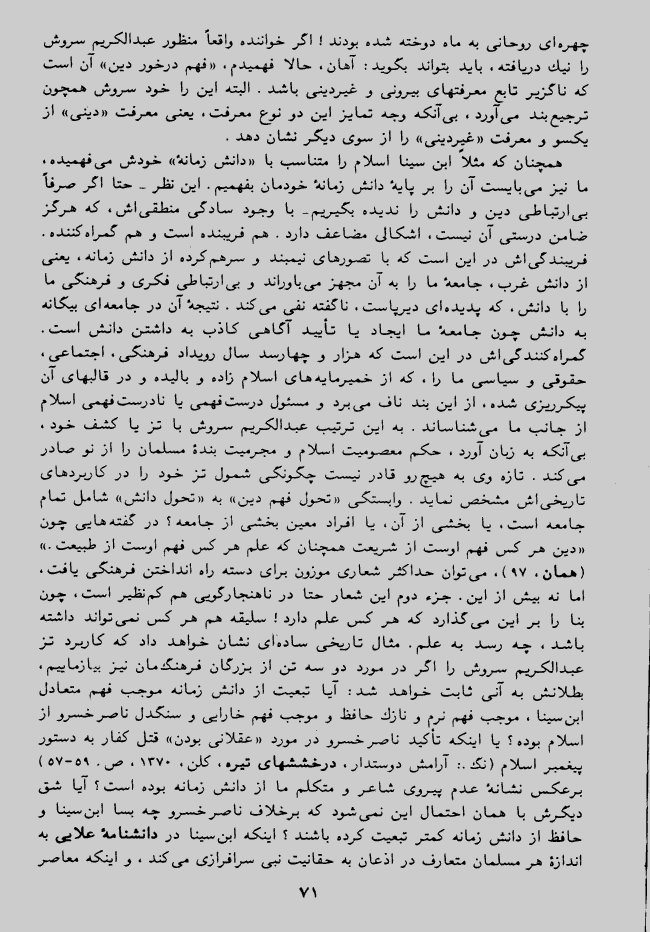 چهره‌ای روحانی به ماه دوخته شده بودند! اگر خواننده واقعاً منظور عبدالکریم سروش
را نیك دریافته، باید بتواند بگوید: آهان، حالا فهمیدم، «فهم درخور دین» آن است
که ناگزیر تابع معرفتهای بیرونی و غیردینی باشد. البته این را خود سروش همچون
ترجیع‌بند می‌آورد، بی‌آنکه وجه تمایز این دو نوع معرفت، یعنی معرفت «دینی» از
یکسو و معرفت «غیردینی» را از سوی دیگر نشان دهد.
همچنان که مثلاً ابن سینا اسلام را متناسب با «دانش زمانهٔ» خودش می‌فهمیده،
ما نیز می‌بایست آن را بر پایهٔ دانش زمانهٔ خودمان بفهمیم. این نظر ـ حتا اگر صرفاً
بی‌ارتباطی دین و دانش را ندیده بگیریم ـ با وجود سادگی منطقی‌اش، که هرگز
ضامن درستی آن نیست، اشکالی مضاعف دارد. هم فریبنده است و هم گمراه‌کننده.
فریبندگی‌اش در این است که با تصورهای نیمبند و سرهم‌کرده از دانش زمانه، یعنی
از دانش غرب، جامعهٔ ما را به آن مجهز می‌باوراند و بی‌ارتباطی فکری و فرهنگی ما
را با دانش، که پدیده‌ای دیرپاست، ناگفته نفی می‌کند. نتیجهٔ آن در جامعه‌ای بیگانه
به دانش چون جامعهٔ ما ایجاد یا تأیید آگاهی کاذب به داشتن دانش است.
گمراه‌کنندگی‌اش در این است که هزار و چهارسد سال رویداد فرهنگی، اجتماعی،
حقوقی و سیاسی ما را، که از خمیرمایه‌های اسلام زاده و بالیده و در قالبهای آن
پیکرریزی شده، از این بند ناف می‌برد و مسئول درست‌فهمی یا نادرست‌فهمی اسلام
از جانب ما می‌شناساند. به این ترتیب عبدالکریم سروش با تز یا کشف خود،
بی‌آنکه به زبان آورد، حکم معصومیت اسلام و مجرمیت بندهٔ مسلمان را از نو صادر
می‌کند. تازه وی به هیچ‌رو قادر نیست چگونگی شمول تز خود را در کاربردهای
تاریخی‌اش مشخص نماید. وابستگی «تحول فهم دین» به «تحول دانش» شامل تمام
جامعه است، یا بخشی از آن، یا افراد معین بخشی از جامعه؟ در گفته‌هایی چون
«دین هر کس فهم اوست از شریعت همچنان که علم هر کس فهم اوست از طبیعت.»
(همان، ۹۷)، می‌توان حداکثر شعاری موزون برای دسته راه انداختن فرهنگی یافت،
اما نه بیش از این. جزء دوم این شعار حتا در ناهنجارگویی هم کم‌نظیر است، چون
بنا را بر این می‌گذارد که هر کس علم دارد! سلیقه هم هر کس نمی‌تواند داشته
باشد، چه رسد به علم. مثال تاریخی ساده‌ای نشان خواهد داد که کاربرد تز
عبدالکریم سروش را اگر در مورد دو سه تن از بزرگان فرهنگ‌مان نیز بیازماییم،
بطلانش به آنی ثابت خواهد شد: آیا تبعیت از دانش زمانه موجب فهم متعادل
ابن‌سینا، موجب فهم نرم و نازك حافظ و موجب فهم خارایی و سنگدل ناصرخسرو از
اسلام بوده؟ یا اینکه تأکید ناصرخسرو در مورد «عقلانی بودن» قتل کفار به دستور
پیغمبر اسلام (نگ.: آرامش دوستدار، درخششهای تیره، کلن، ۱۳۷۰، ص. ۵۹-۵۷)
برعکس نشانهٔ عدم پیروی شاعر و متکلم ما از دانش زمانه بوده است؟ آیا شق
دیگرش با همان احتمال این نمی‌شود که برخلاف ناصرخسرو چه بسا ابن‌سینا و
حافظ از دانش زمانه کمتر تبعیت کرده باشند؟ اینکه ابن‌سینا در دانشنامهٔ علایی به
اندازهٔ هر مسلمان متعارف در اذعان به حقانیت نبی سرافرازی می‌کند، و اینکه معاصر
۷۱